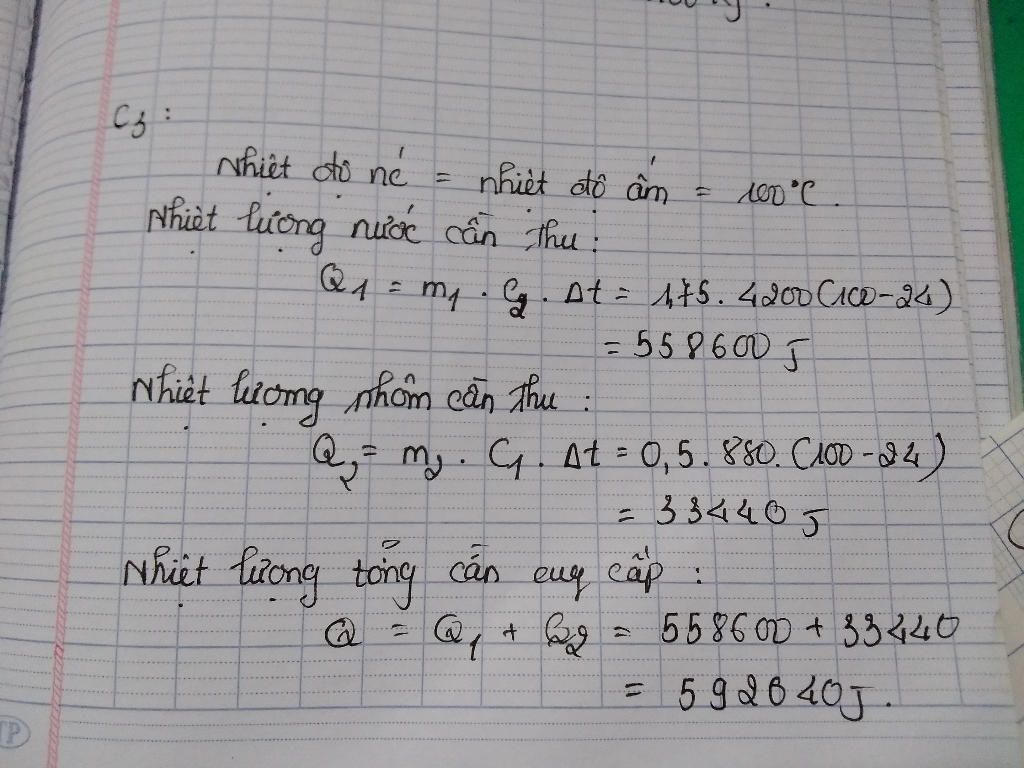 C3 :
Nhiệt độ nć = nhiệt độ ấm = 100°C.
Nhiệt lượng nước cần thu :
Q1 = m1 . C2 . Δt = 1,75 . 4200(100-24)
= 558600 J
Nhiệt lượng nhôm cần thu :
Q2 = m2 . C1 . Δt = 0,5 . 880. (100-24)
= 33440 J
Nhiệt lượng tổng cần cug cấp :
Q = Q1 + Q2 = 558600 + 33440
= 592040J.